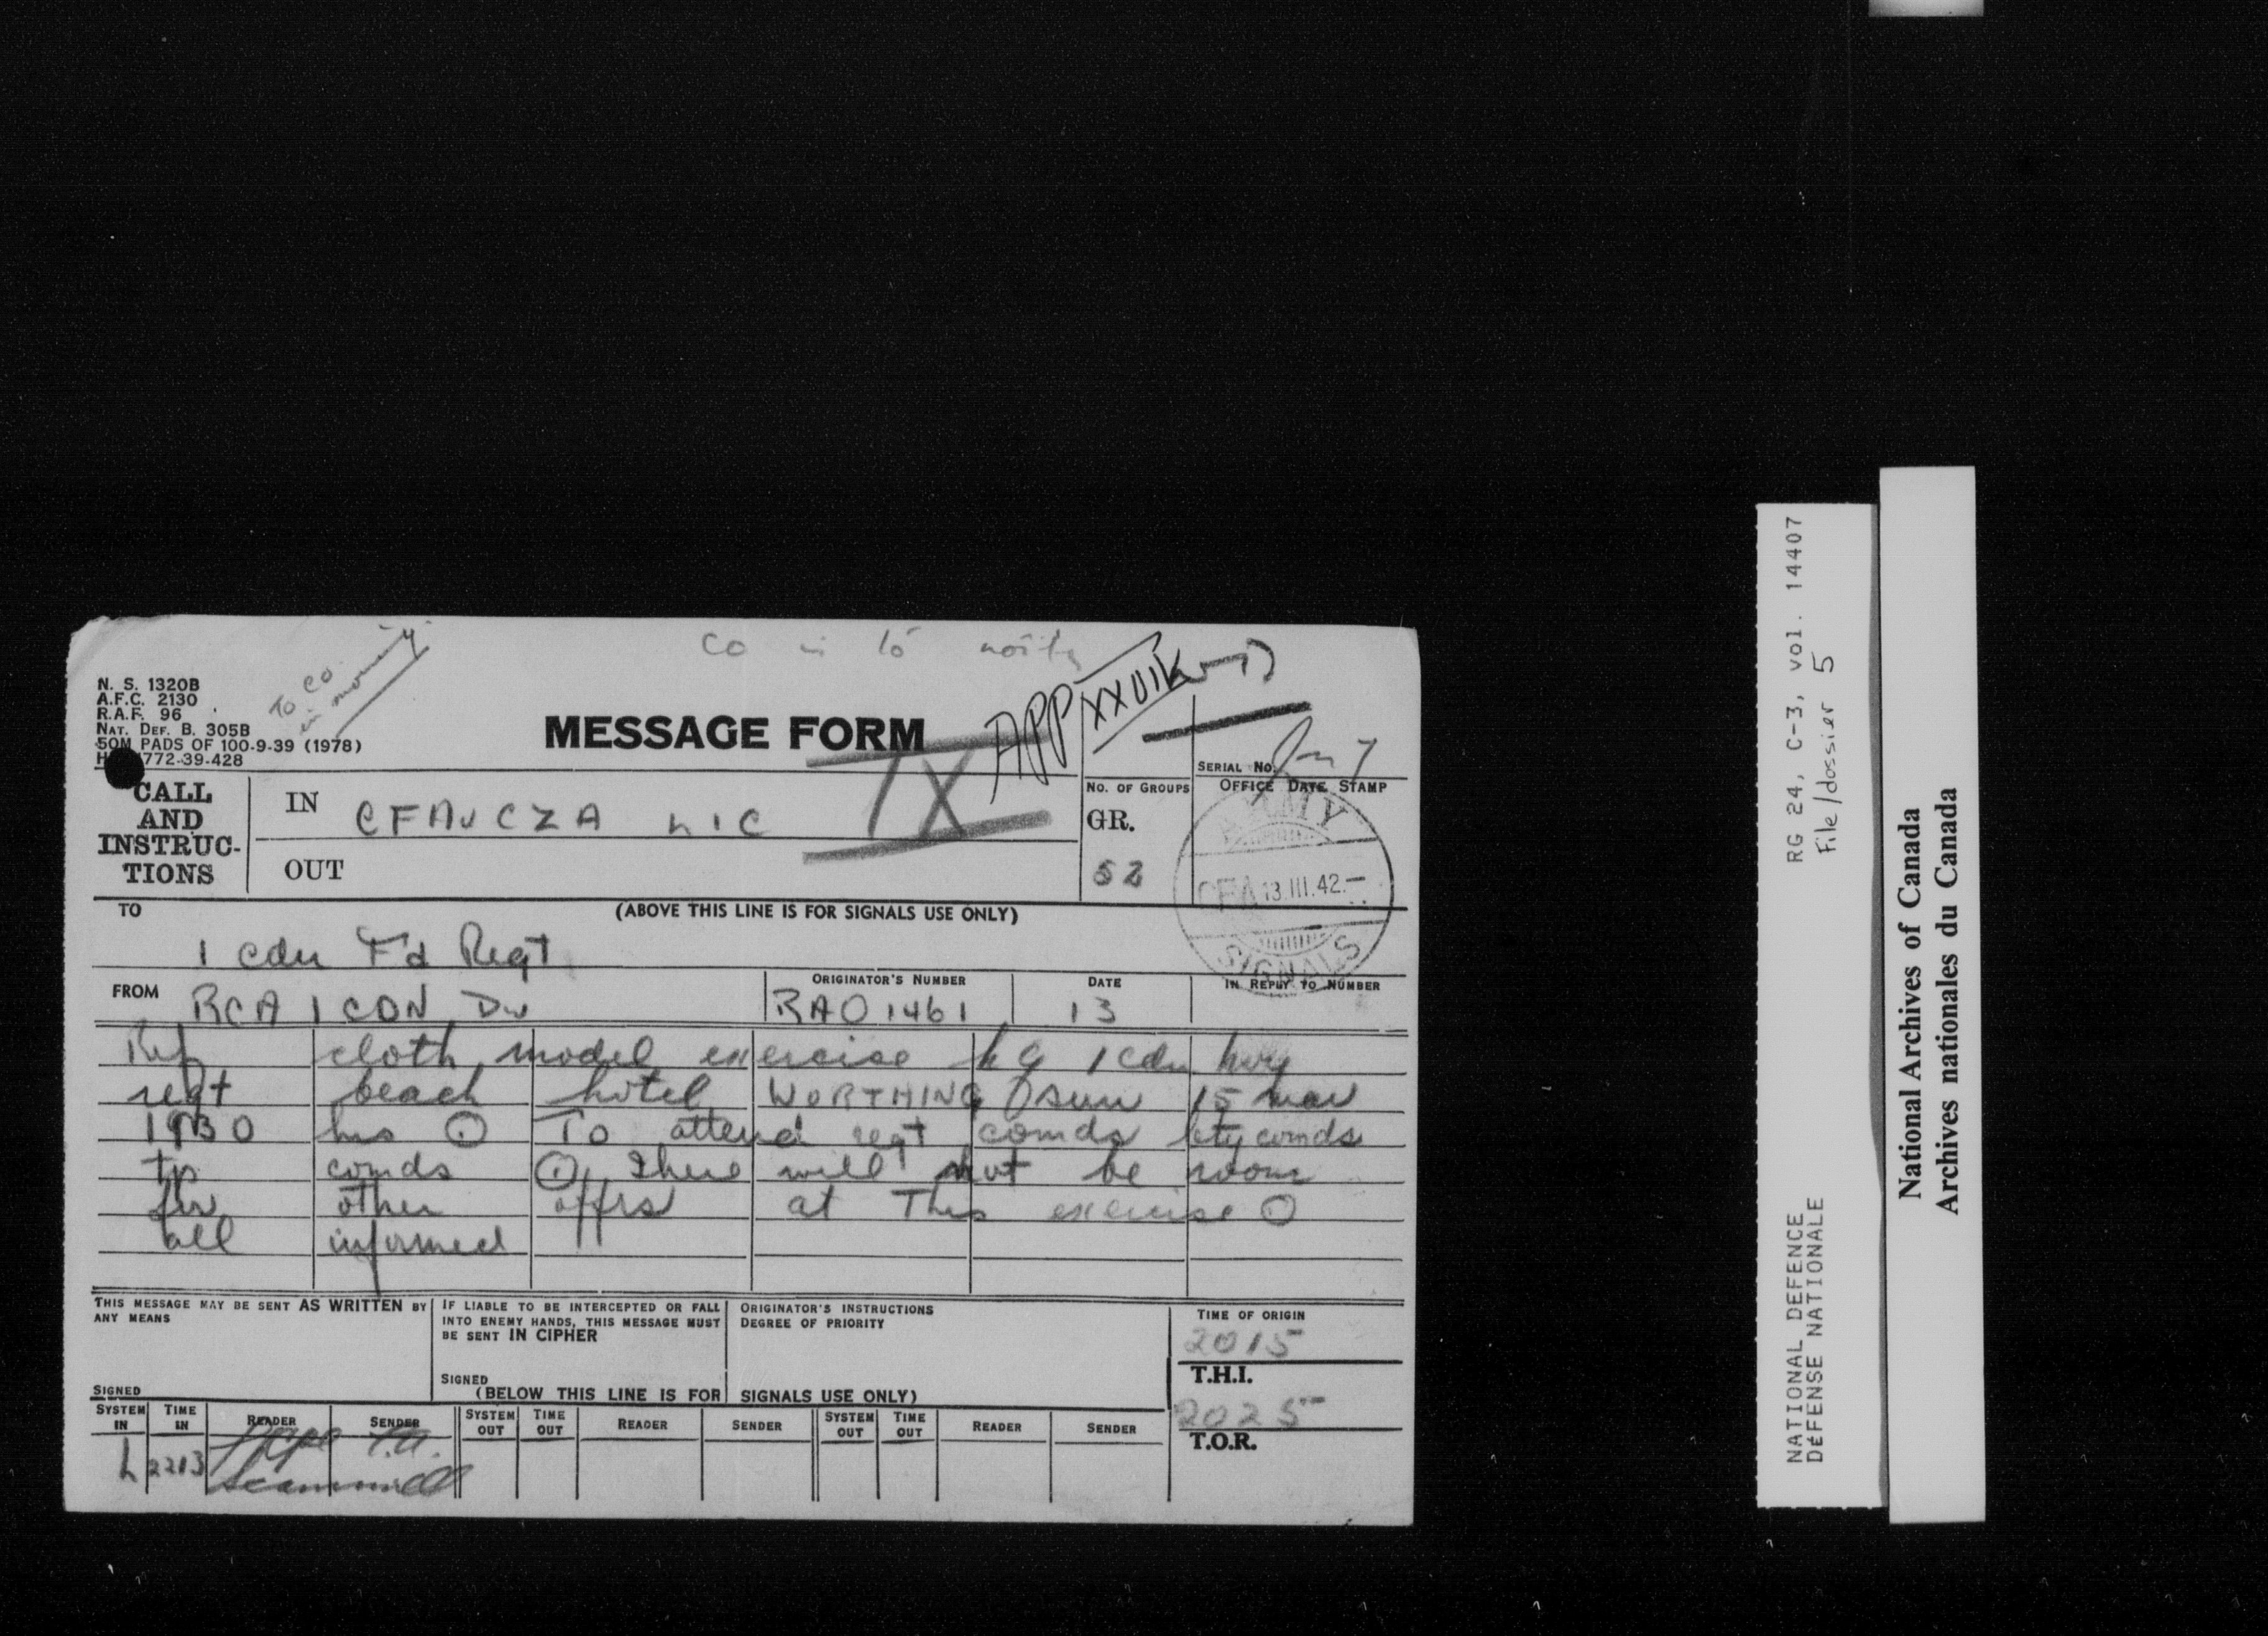 Co in to
To CO
in morning
APP XXVIII
N. S. 1320B
A.F.C. 2130
R.A.F. 96
NAT. DEF. B. 305B
50M PADS OF 100-9-39 (1978)
H 1772-39-428
MESSAGE FORM
IX
SERIAL No.
CALL
AND
INSTRUC-
TIONS
IN
CFAV CZA
OUT
No. OF GROUPS
GR.
52
OFFICE DATE STAMP
ARMY
CFA 13.III.42.-
SIGNALS
TO
(ABOVE THIS LINE IS FOR SIGNALS USE ONLY)
1 Cdn Fd Regt
FROM
RCA 1 CDN Div
ORIGINATOR'S NUMBER
RAO 1461
DATE
13
IN REPLY TO NUMBER
Ref cloth model exercise hq 1 cdn hvy
regt beach hotel WORTHING sun 15 mar
1930 hrs To attend regt comds bty comds
tp comds There will not be room
for other offrs at This exercise
all informed
THIS MESSAGE MAY BE SENT AS WRITTEN BY
ANY MEANS
SIGNED
IF LIABLE TO BE INTERCEPTED OR FALL
INTO ENEMY HANDS, THIS MESSAGE MUST
BE SENT IN CIPHER
SIGNED
ORIGINATOR'S INSTRUCTIONS
DEGREE OF PRIORITY
TIME OF ORIGIN
2015
T.H.I.
2025
T.O.R.
(BELOW THIS LINE IS FOR SIGNALS USE ONLY)
SYSTEM IN TIME IN READER SENDER SYSTEM OUT TIME OUT READER SENDER SYSTEM OUT TIME OUT READER SENDER
L 2213
RG 24, C-3, vol. 14407
File/dossier 5
NATIONAL DEFENCE
DÉFENSE NATIONALE
National Archives of Canada
Archives nationales du Canada